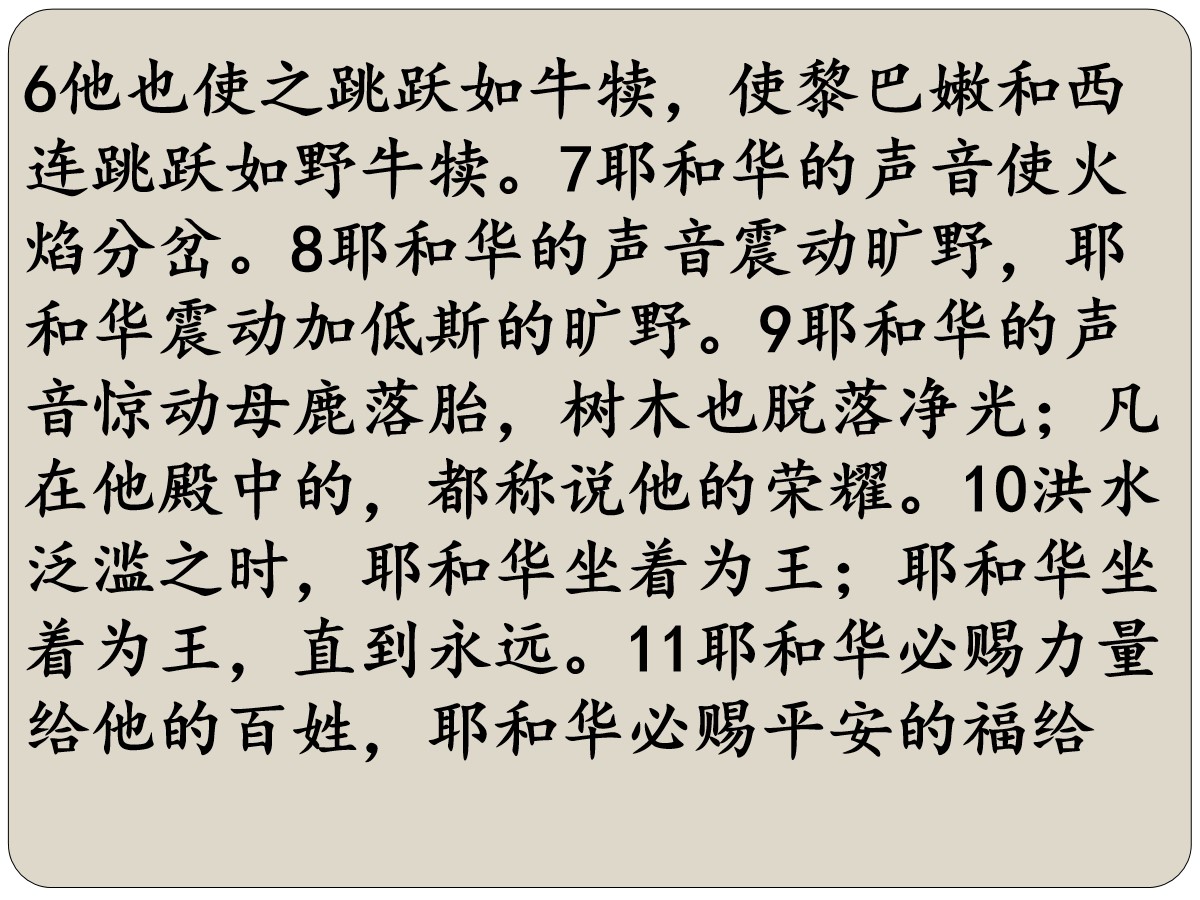 6他也使之跳跃如牛犊，使黎巴嫩和西
连跳跃如野牛犊。7耶和华的声音使火
焰分岔。8耶和华的声音震动旷野，耶
和华震动加低斯的旷野。9耶和华的声
音惊动母鹿落胎，树木也脱落净光；凡
在他殿中的，都称说他的荣耀。10洪水
泛滥之时，耶和华坐着为王；耶和华坐
着为王，直到永远。11耶和华必赐力量
给他的百姓，耶和华必赐平安的福给